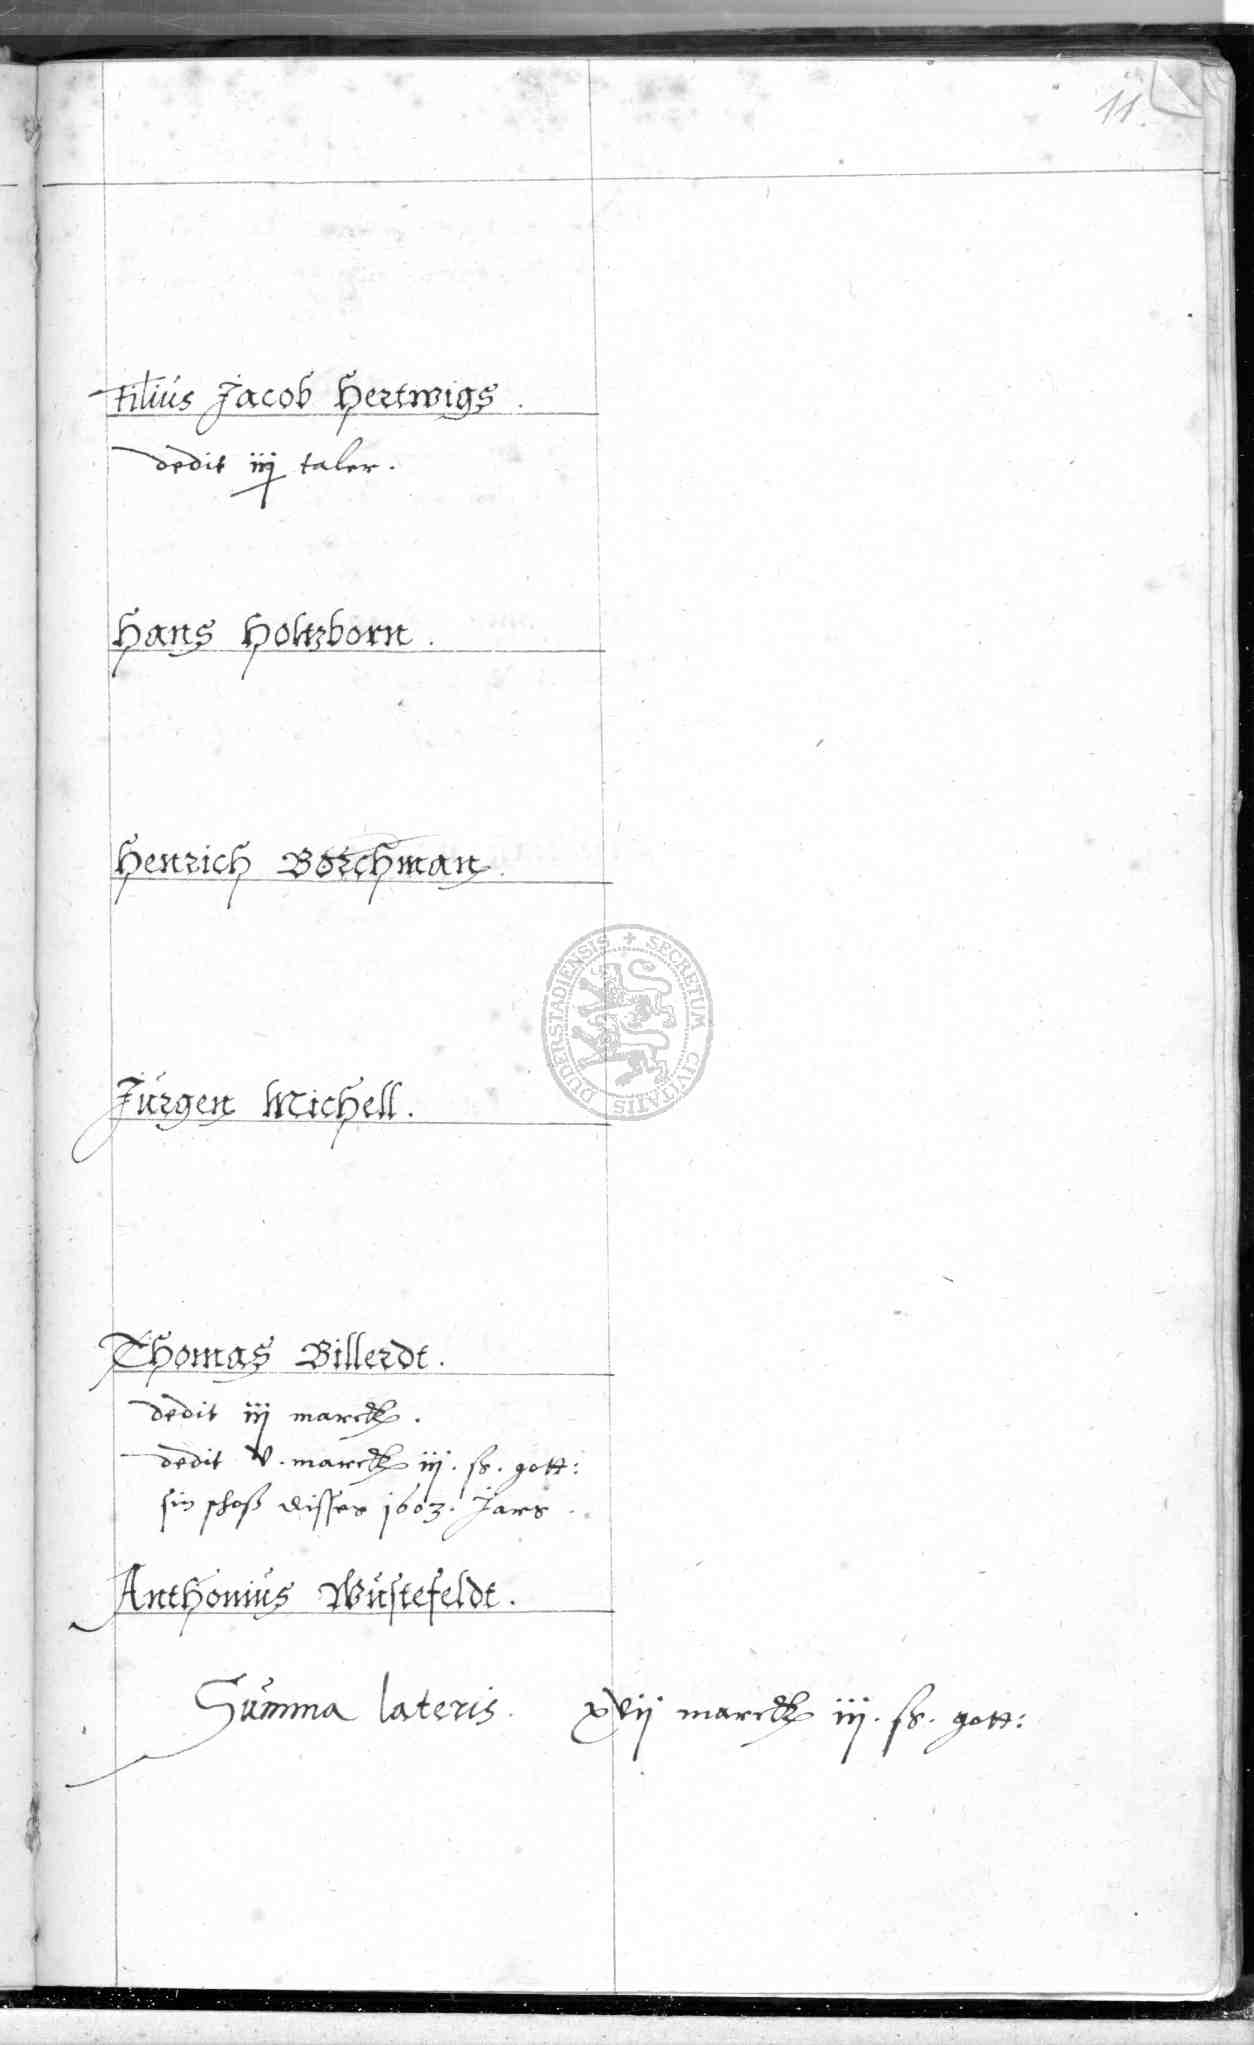 11.
Filius Jacob Hertwigs.
dedit iij taler.
Hans Holtzborn.
Henrich Borchman.
Jürgen Michell.
SECRETUM CIVITATIS DUDERSTADIENSIS
Thomas Billerdt.
dedit iij marck.
dedit v. marck iij. ß. gott:
sin schoß disses 1603. Jars.
Anthonius Wustefeldt.
Summa lateris. xvij marck iij. ß. gott: